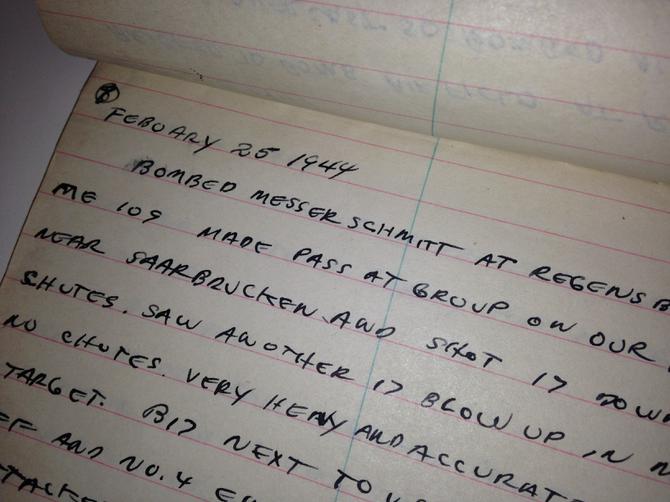 8
FEBUARY 25 1944
BOMBED MESSERSCHMITT AT REGENSB
ME 109 MADE PASS AT GROUP ON OUR
NEAR SAARBRUCKEN AND SHOT 17 DOWN
CHUTES. SAW ANOTHER 17 BLOW UP IN
NO CHUTES. VERY HEAVY AND ACCURAT
TARGET. B17 NEXT TO
AND NO. 4